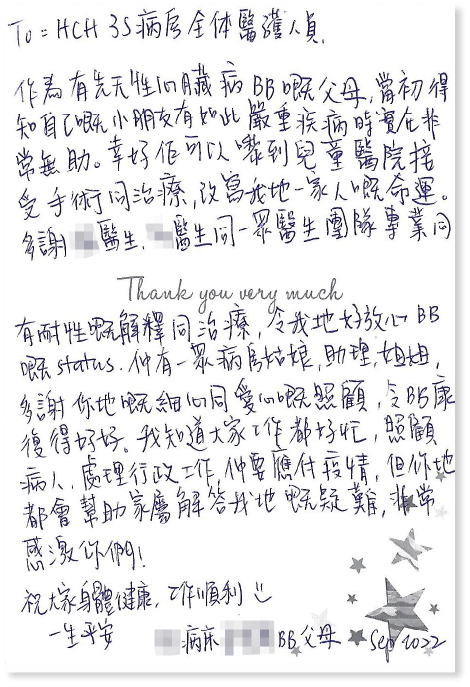 To = HCH 3S 病房全体醫護人員,
作為有先天性心臟病BB嘅父母,當初得
知自己嘅小朋友有如此嚴重疾病時實在非
常無助。幸好佢可以嚟到兒童醫院接
受手術同治療,改寫我地一家人嘅命運。
多謝 醫生, 醫生同一眾醫生團隊專業同
Thank you very much
有耐性嘅解釋同治療,令我地好放心BB
嘅status. 仲有一眾病房姑娘,助理,姐姐,
多謝你地嘅細心同愛心嘅照顧,令BB康
復得好好。我知道大家工作都好忙,照顧
病人,處理行政工作,仲要應付疫情,但你地
都會幫助家屬解答我地嘅疑難,非常
感激你們!
祝大家身體健康,工作順利
一生平安
病床 BB父母
Sep 2022